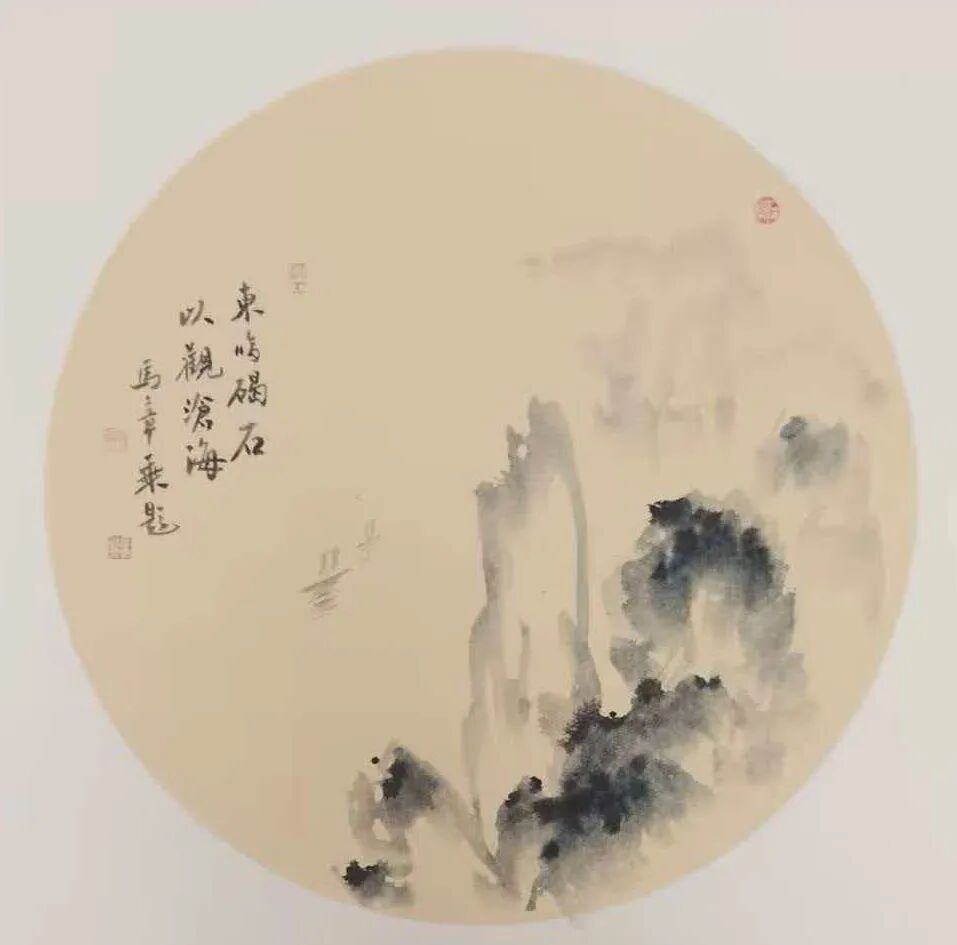 東临碣石
以觀滄海
馬章乘題